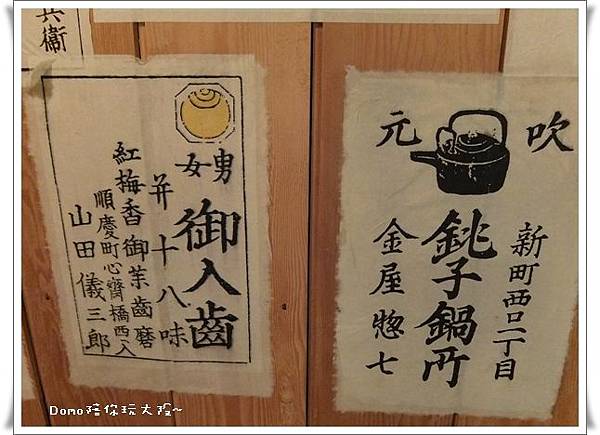 兵衞
男女
御入齒
并十八味
紅梅香御薬齒磨
順慶町心齋橋西入
山田儀三郎
吹元
新町西口二丁目
銚子鍋所
金屋惣七
Domo陪你玩大阪~